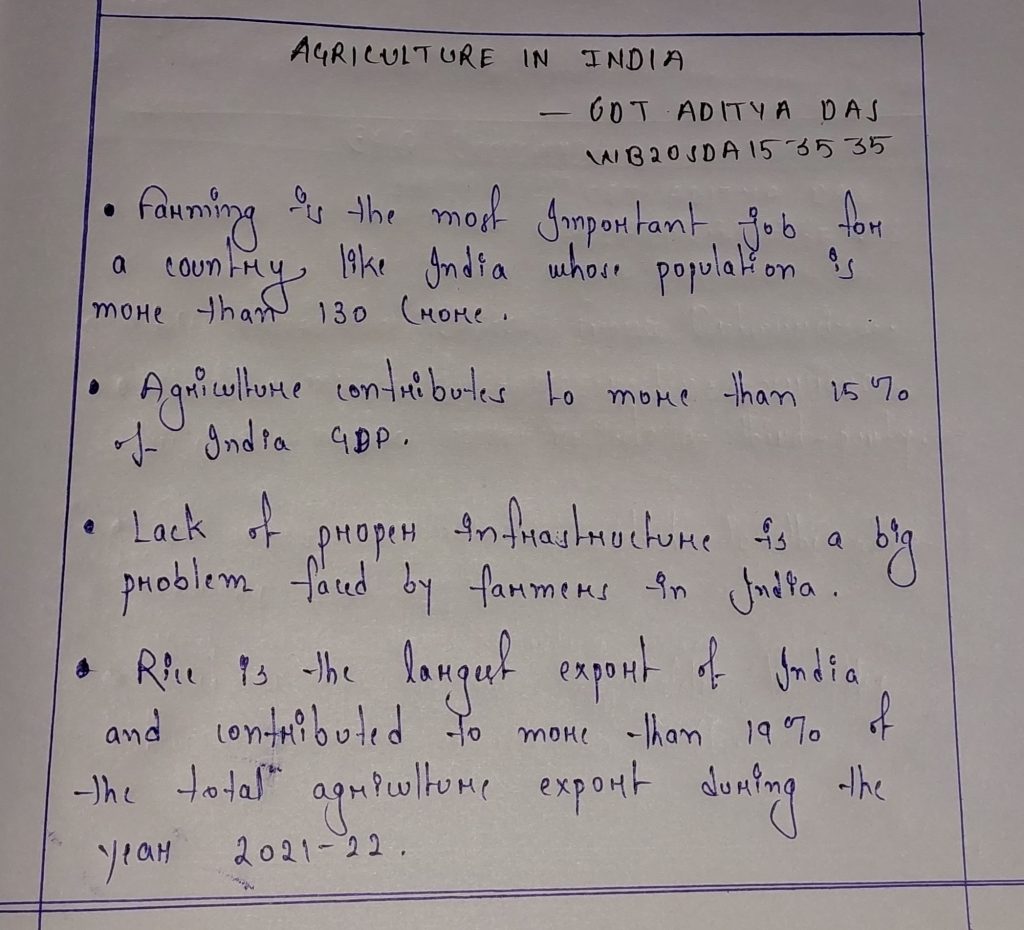 AGRICULTURE IN INDIA
— CDT ADITYA DAS
WB20SDA153535
• Farming is the most Important job for
a country like India whose population is
more than 130 Crore.
• Agriculture contributes to more than 15%
of India GDP.
• Lack of proper infrastructure is a big
problem faced by farmers in India.
• Rice is the largest export of India
and contributed to more than 19% of
the total agriculture export during the
year 2021-22.